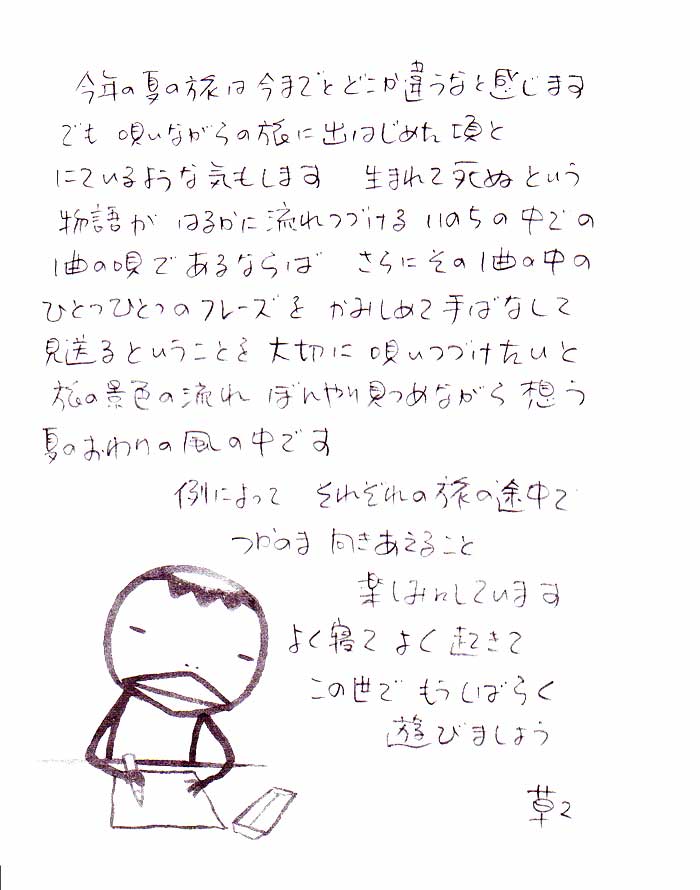 今年の夏の旅は今までとどこか違うなと感じます
でも 唄いながらの旅に出はじめた頃と
にているような気もします 生まれて死ぬという
物語が はるかに流れつづける いのちの中での
1曲の唄であるならば さらにその1曲の中の
ひとつひとつのフレーズを かみしめて手ばなして
見送るということを 大切に 唄いつづけたいと
旅の景色の流れ ぼんやり見つめながら 想う
夏のおわりの風の中です
例によって それぞれの旅の途中で
つかのま 向きあえること
楽しみにしています
よく寝て よく起きて
この世で もうしばらく
遊びましょう